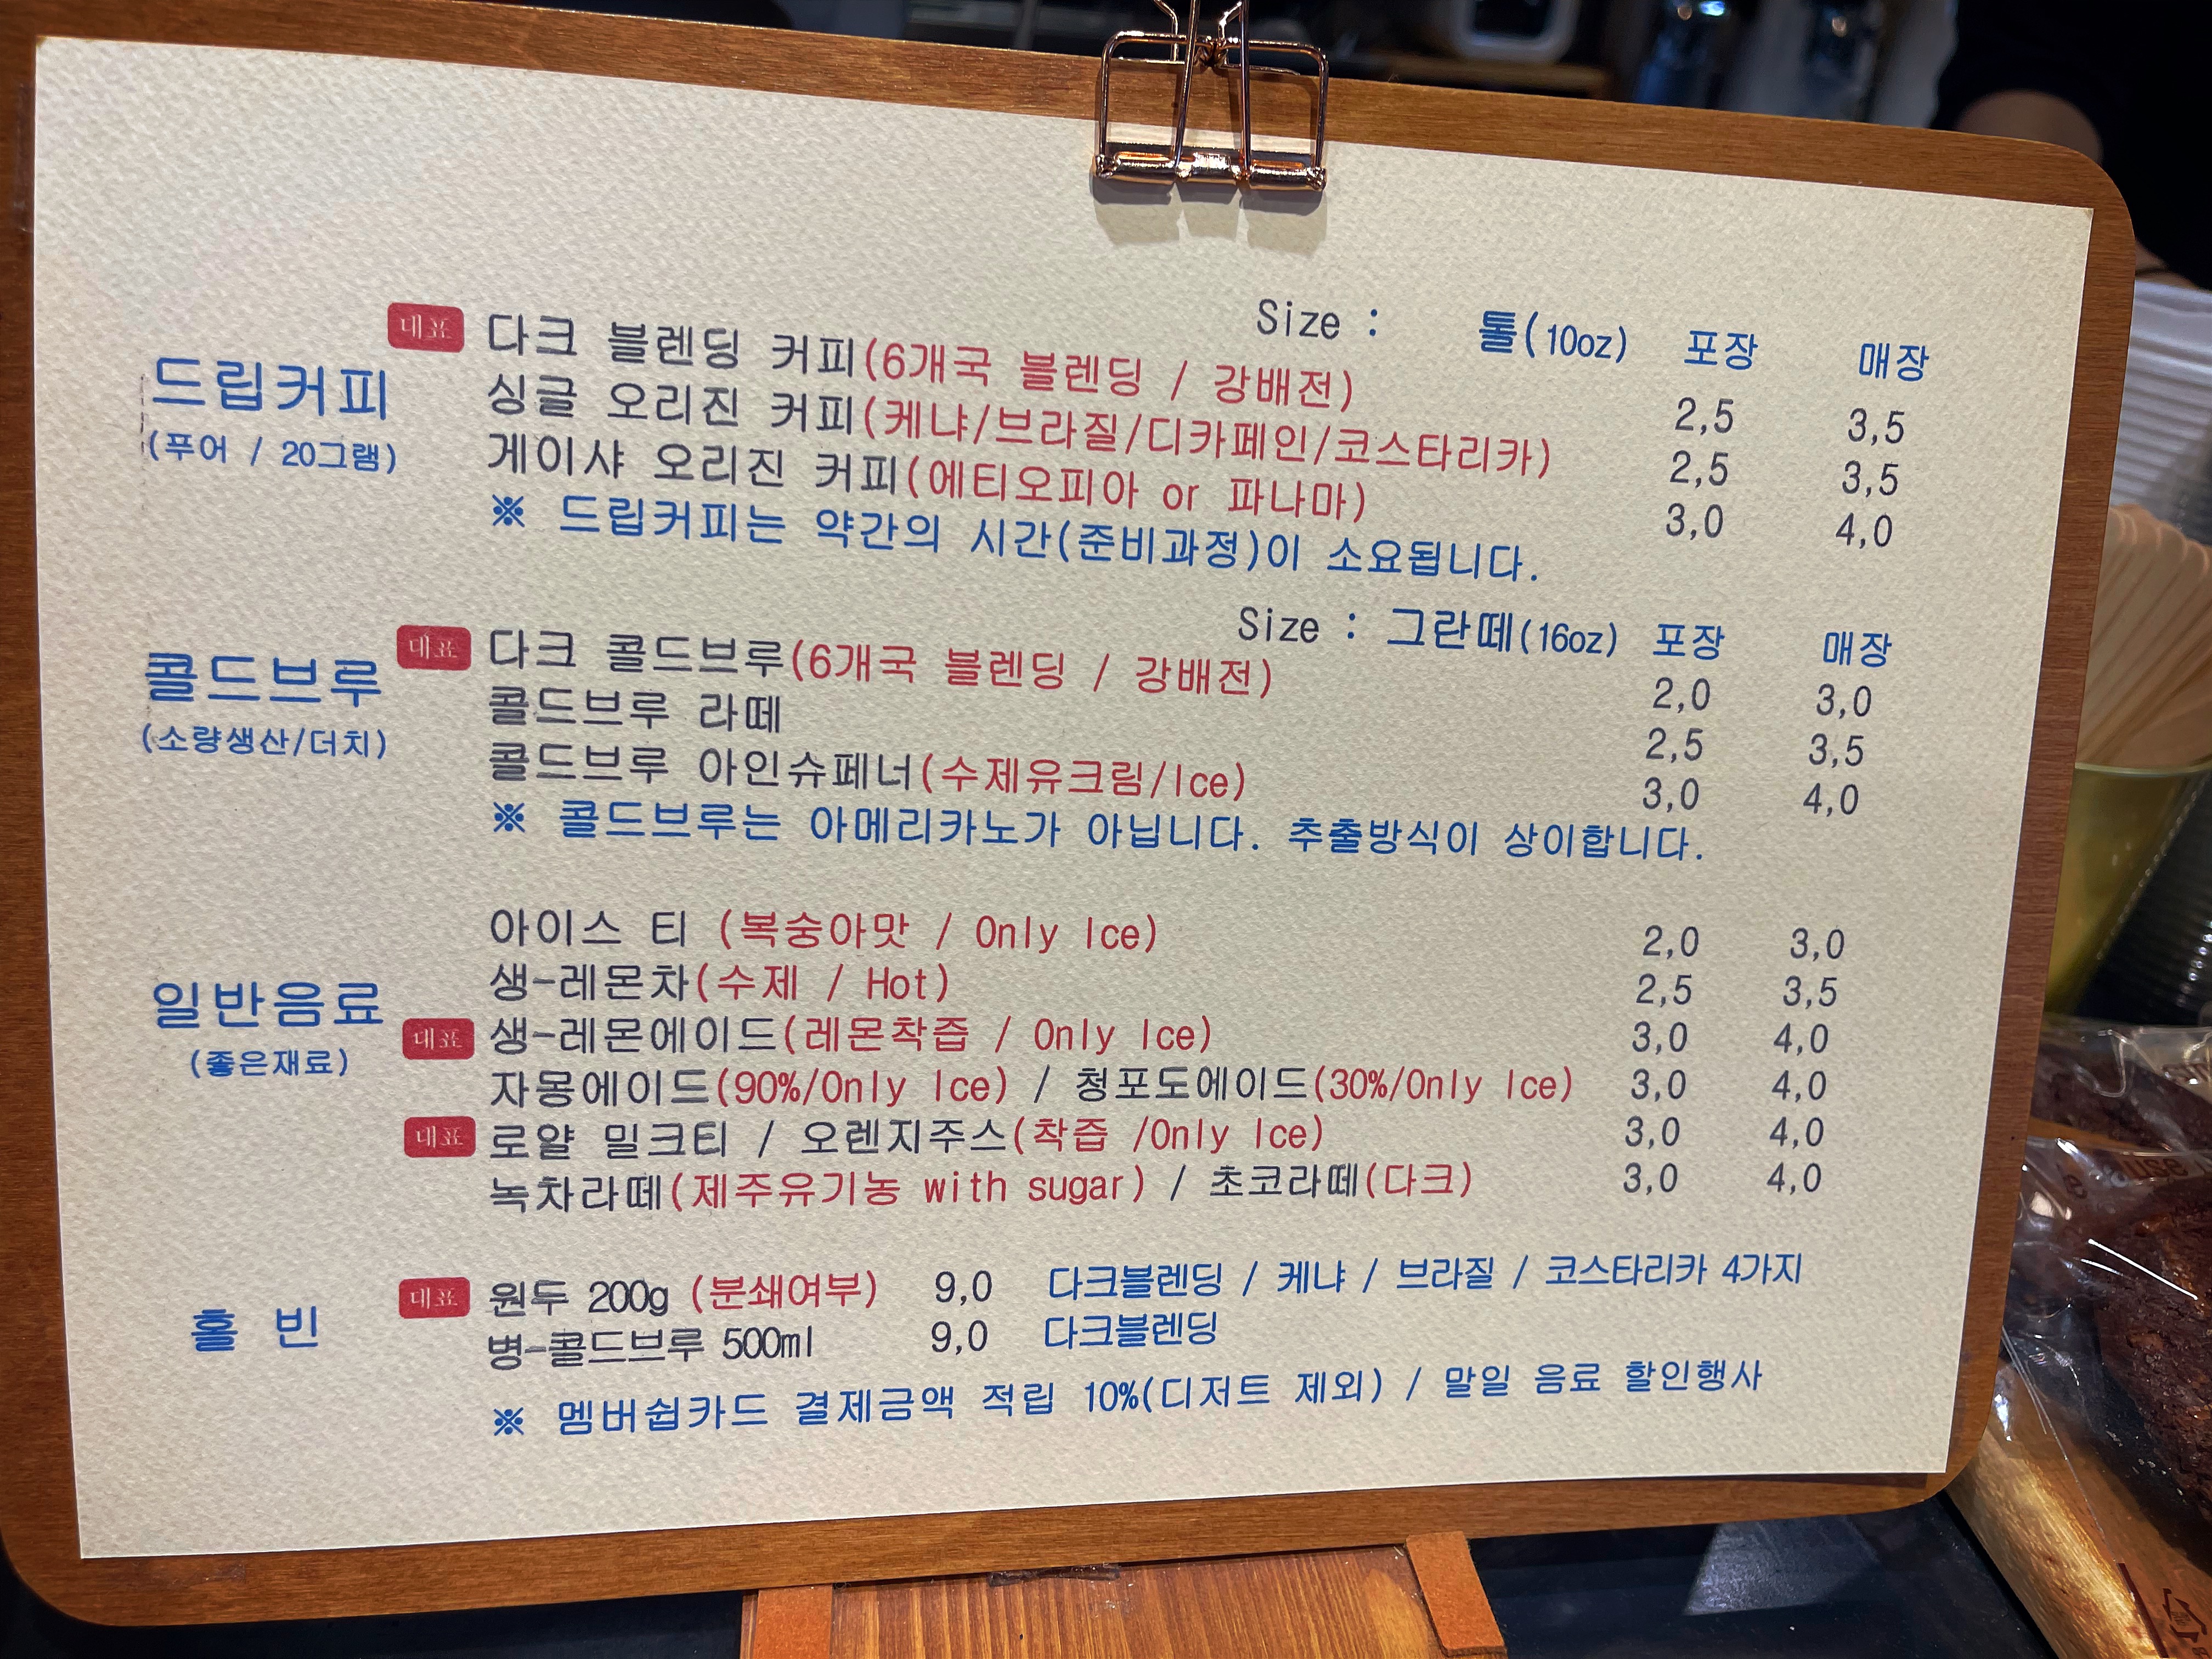 Size : 톨(10oz) 포장 매장
드립커피
(푸어 / 20그램)
대표 다크 블렌딩 커피(6개국 블렌딩 / 강배전) 2,5 3,5
싱글 오리진 커피(케냐/브라질/디카페인/코스타리카) 2,5 3,5
게이샤 오리진 커피(에티오피아 or 파나마) 3,0 4,0
※ 드립커피는 약간의 시간(준비과정)이 소요됩니다.
Size : 그란떼(16oz) 포장 매장
콜드브루
(소량생산/더치)
대표 다크 콜드브루(6개국 블렌딩 / 강배전) 2,0 3,0
콜드브루 라떼 2,5 3,5
콜드브루 아인슈페너(수제유크림/Ice) 3,0 4,0
※ 콜드브루는 아메리카노가 아닙니다. 추출방식이 상이합니다.
일반음료
(좋은재료)
아이스 티 (복숭아맛 / Only Ice) 2,0 3,0
생-레몬차(수제 / Hot) 2,5 3,5
대표 생-레몬에이드(레몬착즙 / Only Ice) 3,0 4,0
자몽에이드(90%/Only Ice) / 청포도에이드(30%/Only Ice) 3,0 4,0
대표 로얄 밀크티 / 오렌지주스(착즙 /Only Ice) 3,0 4,0
녹차라떼(제주유기농 with sugar) / 초코라떼(다크) 3,0 4,0
홀 빈
대표 원두 200g (분쇄여부) 9,0 다크블렌딩 / 케냐 / 브라질 / 코스타리카 4가지
병-콜드브루 500ml 9,0 다크블렌딩
※ 멤버쉽카드 결제금액 적립 10%(디저트 제외) / 말일 음료 할인행사